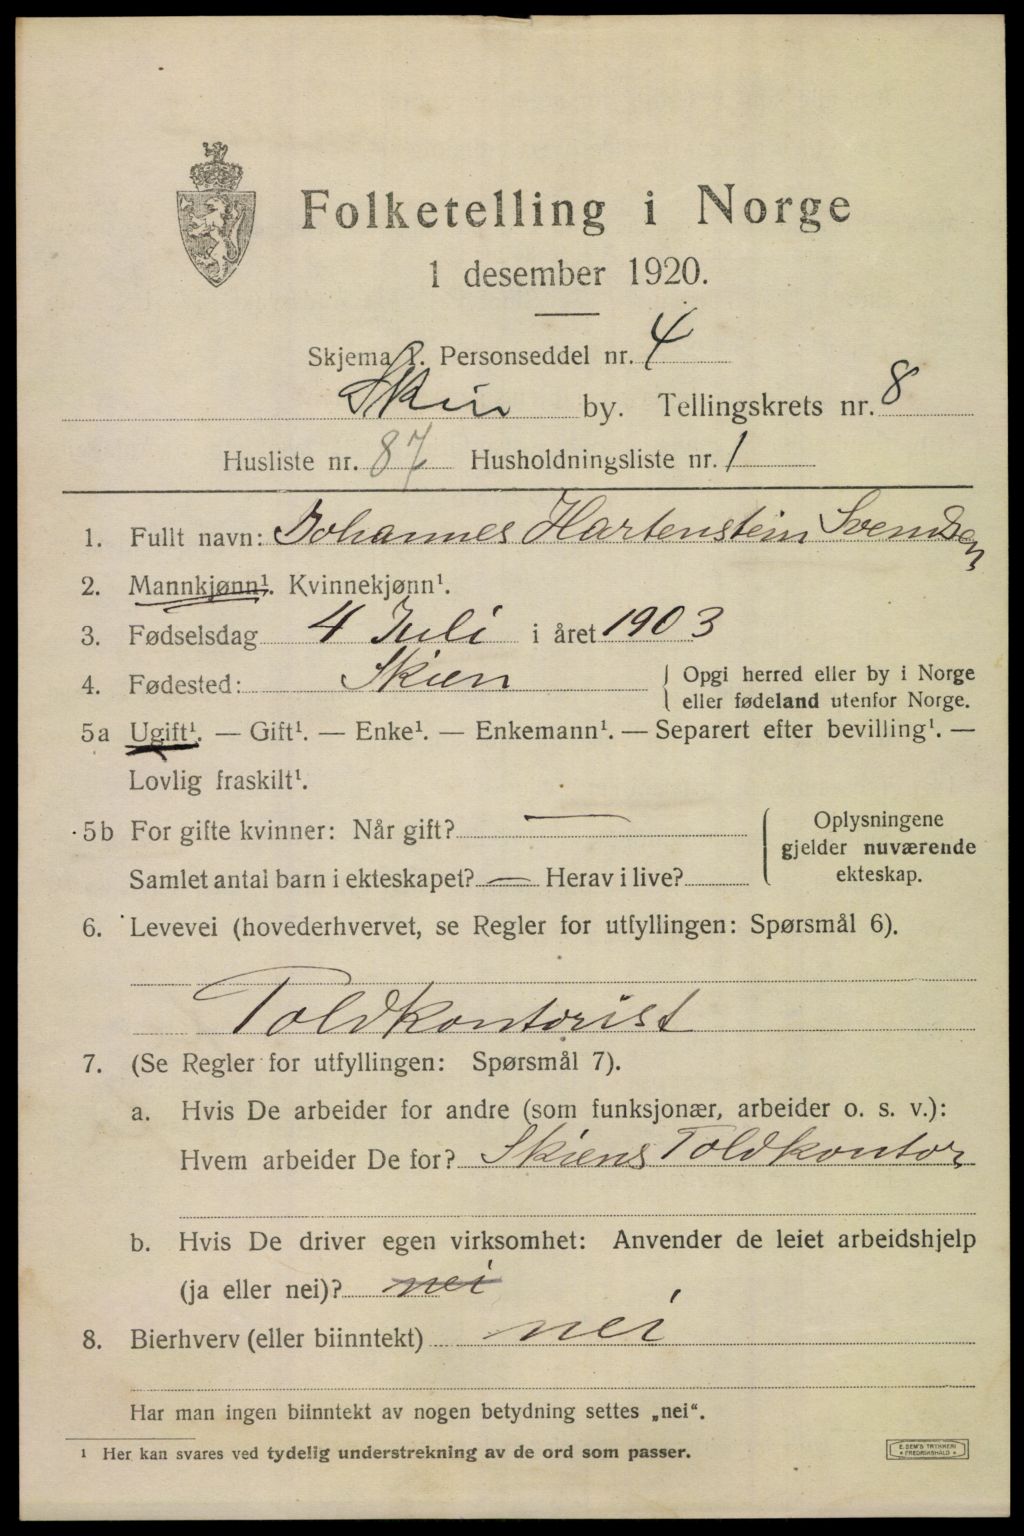 Folketelling i Norge
1 desember 1920.
Skjema 2. Personseddel nr. 4
Skien by. Tellingskrets nr. 8
Husliste nr. 87 Husholdningsliste nr. 1
1. Fullt navn: Johannes Hartenstein Svendsen
2. Mannkjønn¹. Kvinnekjønn¹.
3. Fødselsdag 4 Juli i året 1903
4. Fødested: Skien { Opgi herred eller by i Norge
eller fødeland utenfor Norge.
5a Ugift¹. — Gift¹. — Enke¹. — Enkemann¹. — Separert efter bevilling¹. —
Lovlig fraskilt¹.
5b For gifte kvinner: Når gift? — { Oplysningene
gjelder nuværende
ekteskap.
Samlet antal barn i ekteskapet? — Herav i live?
6. Levevei (hovederhvervet, se Regler for utfyllingen: Spørsmål 6).
Toldkontorist
7. (Se Regler for utfyllingen: Spørsmål 7).
a. Hvis De arbeider for andre (som funksjonær, arbeider o. s. v.):
Hvem arbeider De for? Skiens Toldkontor
b. Hvis De driver egen virksomhet: Anvender de leiet arbeidshjelp
(ja eller nei)? nei
8. Bierhverv (eller biinntekt) nei
Har man ingen biinntekt av nogen betydning settes „nei“.
¹ Her kan svares ved tydelig understrekning av de ord som passer.
E. SEM'S TRYKKERI
FREDRIKSHALD